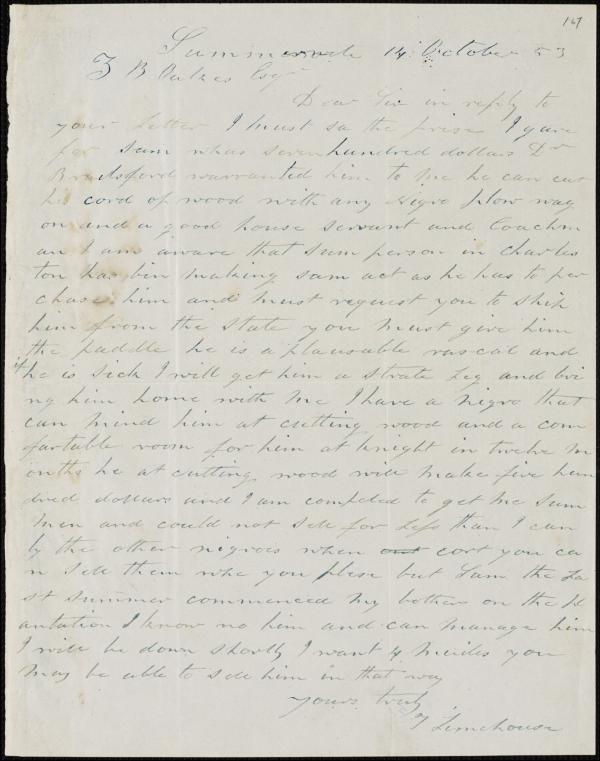 167
Summerville 14 October 53
Z B Oakes Esqr
Dear Sir in reply to
your Letter I must sa the prise I gave
for sam whas seven hundred dollars Dr
Brailsford warranted him to me he can cut
his cord of wood with any Nigro plow wag
on and a good house servant and Coachm
an I am aware that sum person in Charles
ton has bin making sam act as he has to per
chase him and must request you to ship
him from the state you must give him
the paddle he is a plausable rascal and
if he is sick I will get him a strate Leg and bri
ng him home with me I have a nigro that
can mind him at cutting wood and a com
fortable room for him at knight in twelve m
onths he at cutting wood will make five hun
dred dollars and I am compeled to get me sum
men and could not sell for Less than I can
by the other nigroes when cort you ca
n sell them whe you plese but Sam the La
st summer commenced my bothers on the pl
antation I know no him and can manage him
I will be down shortly I want 4 meules you
may be able to sell him in that way
yours truly
T Limehouse